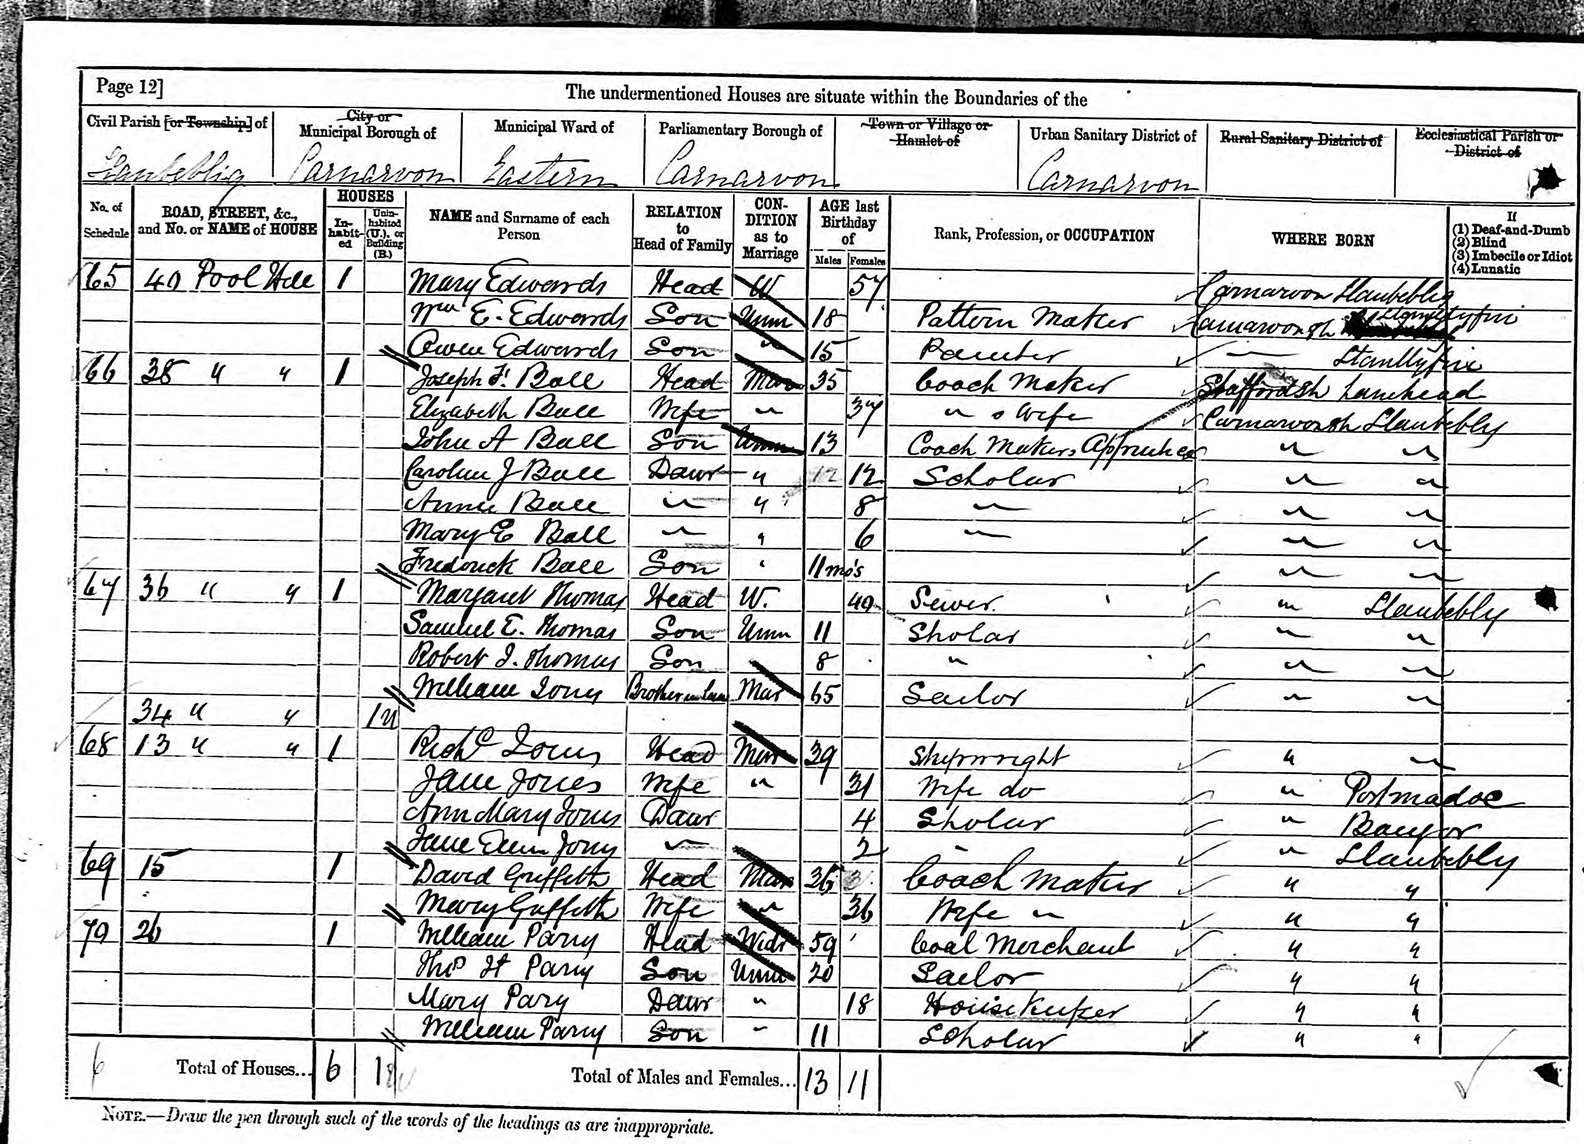 Page 12]
The undermentioned Houses are situate within the Boundaries of the
Civil Parish [or Township] of
City or Municipal Borough of
Municipal Ward of
Parliamentary Borough of
Town or Village or Hamlet of
Urban Sanitary District of
Rural Sanitary District of
Ecclesiastical Parish or District of
Llanbeblig Carnarvon Eastern Carnarvon Carnarvon
No. of Schedule
ROAD, STREET, &c., and No. or NAME of HOUSE
HOUSES
Inhabited
Uninhabited (U.), or Building (B.)
NAME and Surname of each Person
RELATION to Head of Family
CONDITION as to Marriage
AGE last Birthday of
Males Females
Rank, Profession, or OCCUPATION
WHERE BORN
If
(1) Deaf-and-Dumb
(2) Blind
(3) Imbecile or Idiot
(4) Lunatic
65 40 Pool Hill 1 Mary Edwards Head W 57 Carnarvon Llanbeblig
Wm E. Edwards Son Unm 18 Pattern Maker Carnarvonsh
Owen Edwards Son " 15 Painter "
66 38 " " 1 Joseph F. Ball Head Mar 35 Coach Maker Staffordsh Lanehead
Elizabeth Ball Wife " 37 " s Wife Carnarvonsh Llanbebly
John A Ball Son Unm 13 Coach Makers Apprentice " "
Caroline J Ball Dawr " 12 Scholar " "
Annie Ball " " 8 " " "
Mary E Ball " " 6 " " "
Frederick Ball Son " 11 mo's " "
67 36 " " 1 Margaret Thomas Head W. 40 Sewer. " Llanbebly
Samuel E. Thomas Son Unm 11 Sholar " "
Robert J. Thomas Son 8 " " "
William Jones Brother in law Mar 65 Sailor " "
34 " " 1 U
68 13 " " 1 Richd Jones Head Mar 39 Shipwright " "
Jane Jones Wife " 31 Wife do " Portmadoc
Ann Mary Jones Dawr 4 Sholar " Bangor
Jane Jones " 2 " " Llanbebly
69 15 1 David Griffith Head Mar 36 Coach Maker " "
Mary Griffith Wife " 36 Wife " " "
70 26 1 William Parry Head Widr 59 Coal Merchant " "
Thos H Parry Son Unm 20 Sailor " "
Mary Pary Dawr " 18 House Keeper " "
William Parry Son " 11 Scholar " "
6 Total of Houses... 6 1 U Total of Males and Females... 13 11
NOTE.—Draw the pen through such of the words of the headings as are inappropriate.